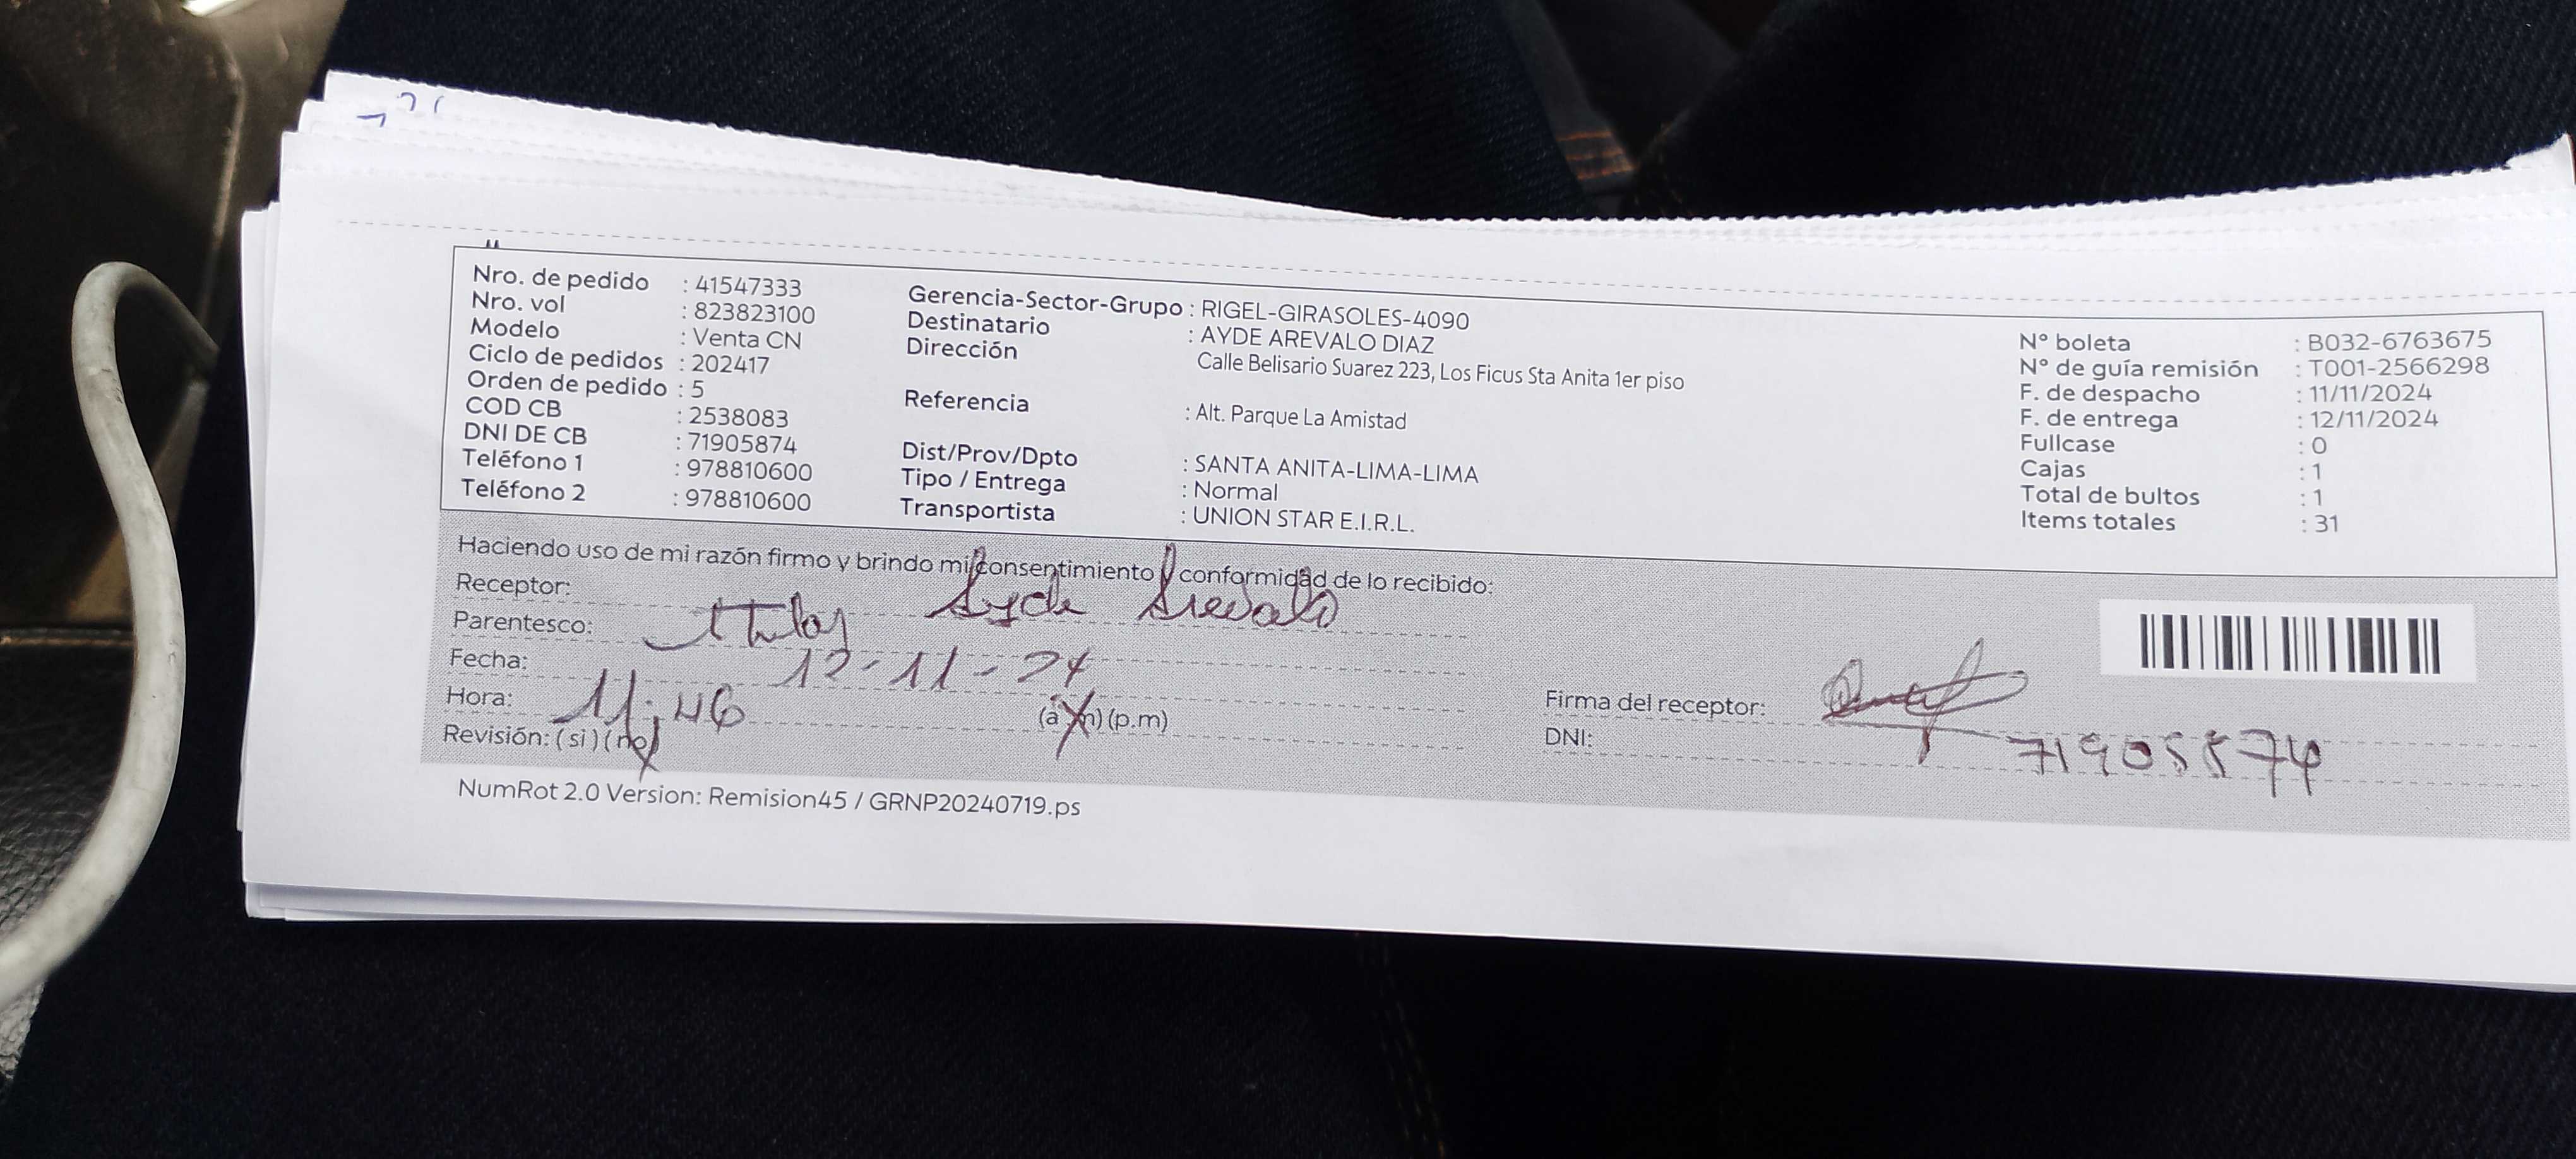 Nro. de pedido : 41547333
Nro. vol : 823823100
Modelo : Venta CN
Ciclo de pedidos : 202417
Orden de pedido : 5
COD CB : 2538083
DNI DE CB : 71905874
Teléfono 1 : 978810600
Teléfono 2 : 978810600
Gerencia-Sector-Grupo : RIGEL-GIRASOLES-4090
Destinatario : AYDE AREVALO DIAZ
Dirección Calle Belisario Suarez 223, Los Ficus Sta Anita 1er piso
Referencia : Alt. Parque La Amistad
Dist/Prov/Dpto : SANTA ANITA-LIMA-LIMA
Tipo / Entrega : Normal
Transportista : UNION STAR E.I.R.L.
N° boleta : B032-6763675
N° de guía remisión : T001-2566298
F. de despacho : 11/11/2024
F. de entrega : 12/11/2024
Fullcase : 0
Cajas : 1
Total de bultos : 1
Items totales : 31
Haciendo uso de mi razón firmo y brindo mi consentimiento y conformidad de lo recibido:
Receptor: Ayde Arevalo
Parentesco: titular
Fecha: 12-11-24
Hora: 11:46 (a.m) (p.m)
Revisión: (si) (no)
Firma del receptor:
DNI: 71905874
NumRot 2.0 Version: Remision45 / GRNP20240719.ps